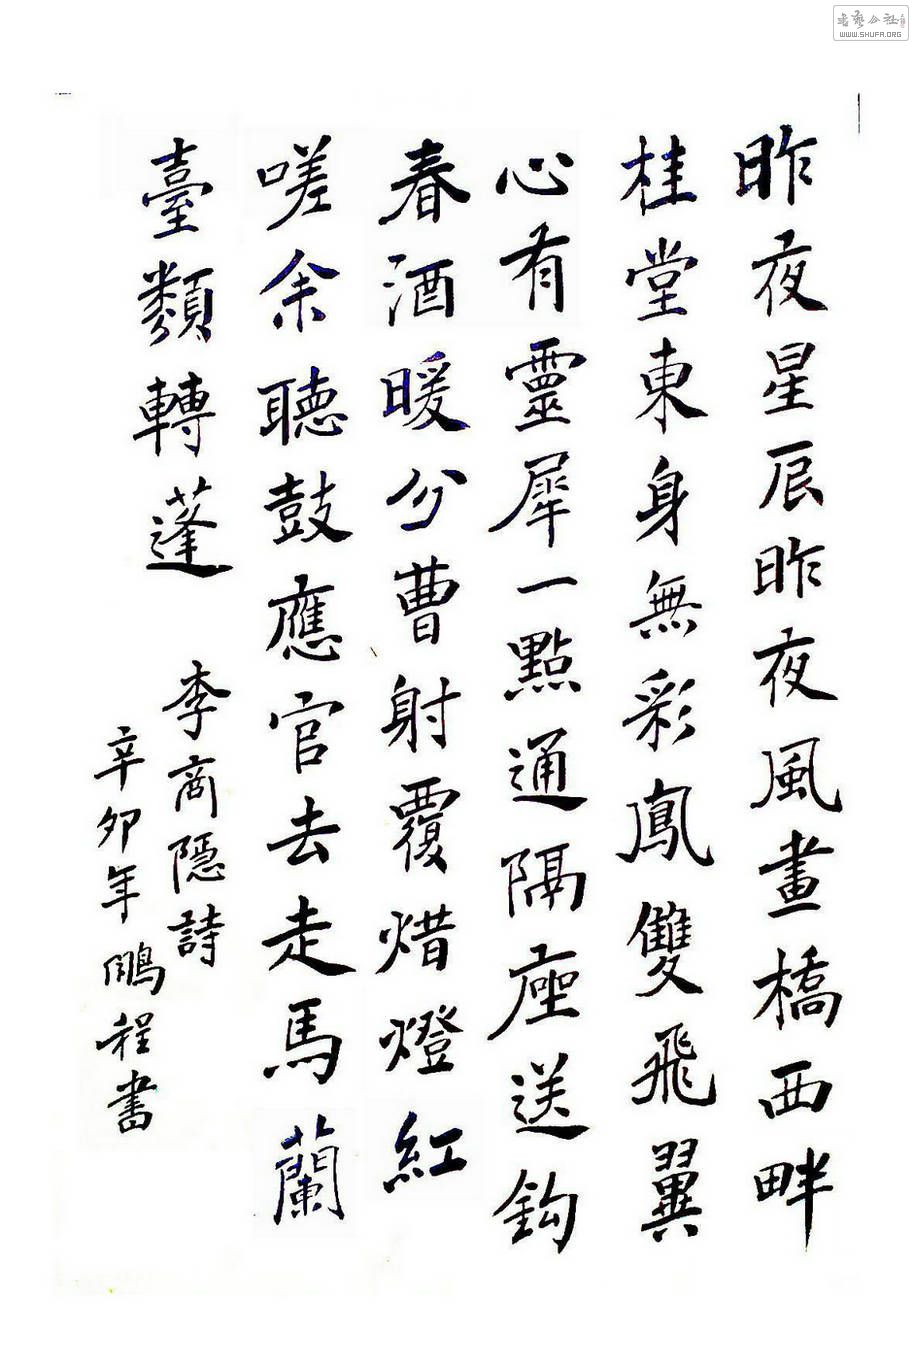 昨夜星辰昨夜風畫橋西畔
桂堂東身無彩鳳雙飛翼
心有靈犀一點通隔座送鈎
春酒暖分曹射覆焟燈紅
嗟余聽鼓應官去走馬蘭
臺類轉蓬
李商隱詩
辛卯年鵬程書
WWW.SHUFA.ORG